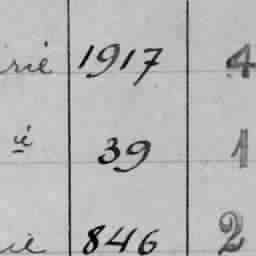 rié 1917 4
ü 39 1
ie 846 2